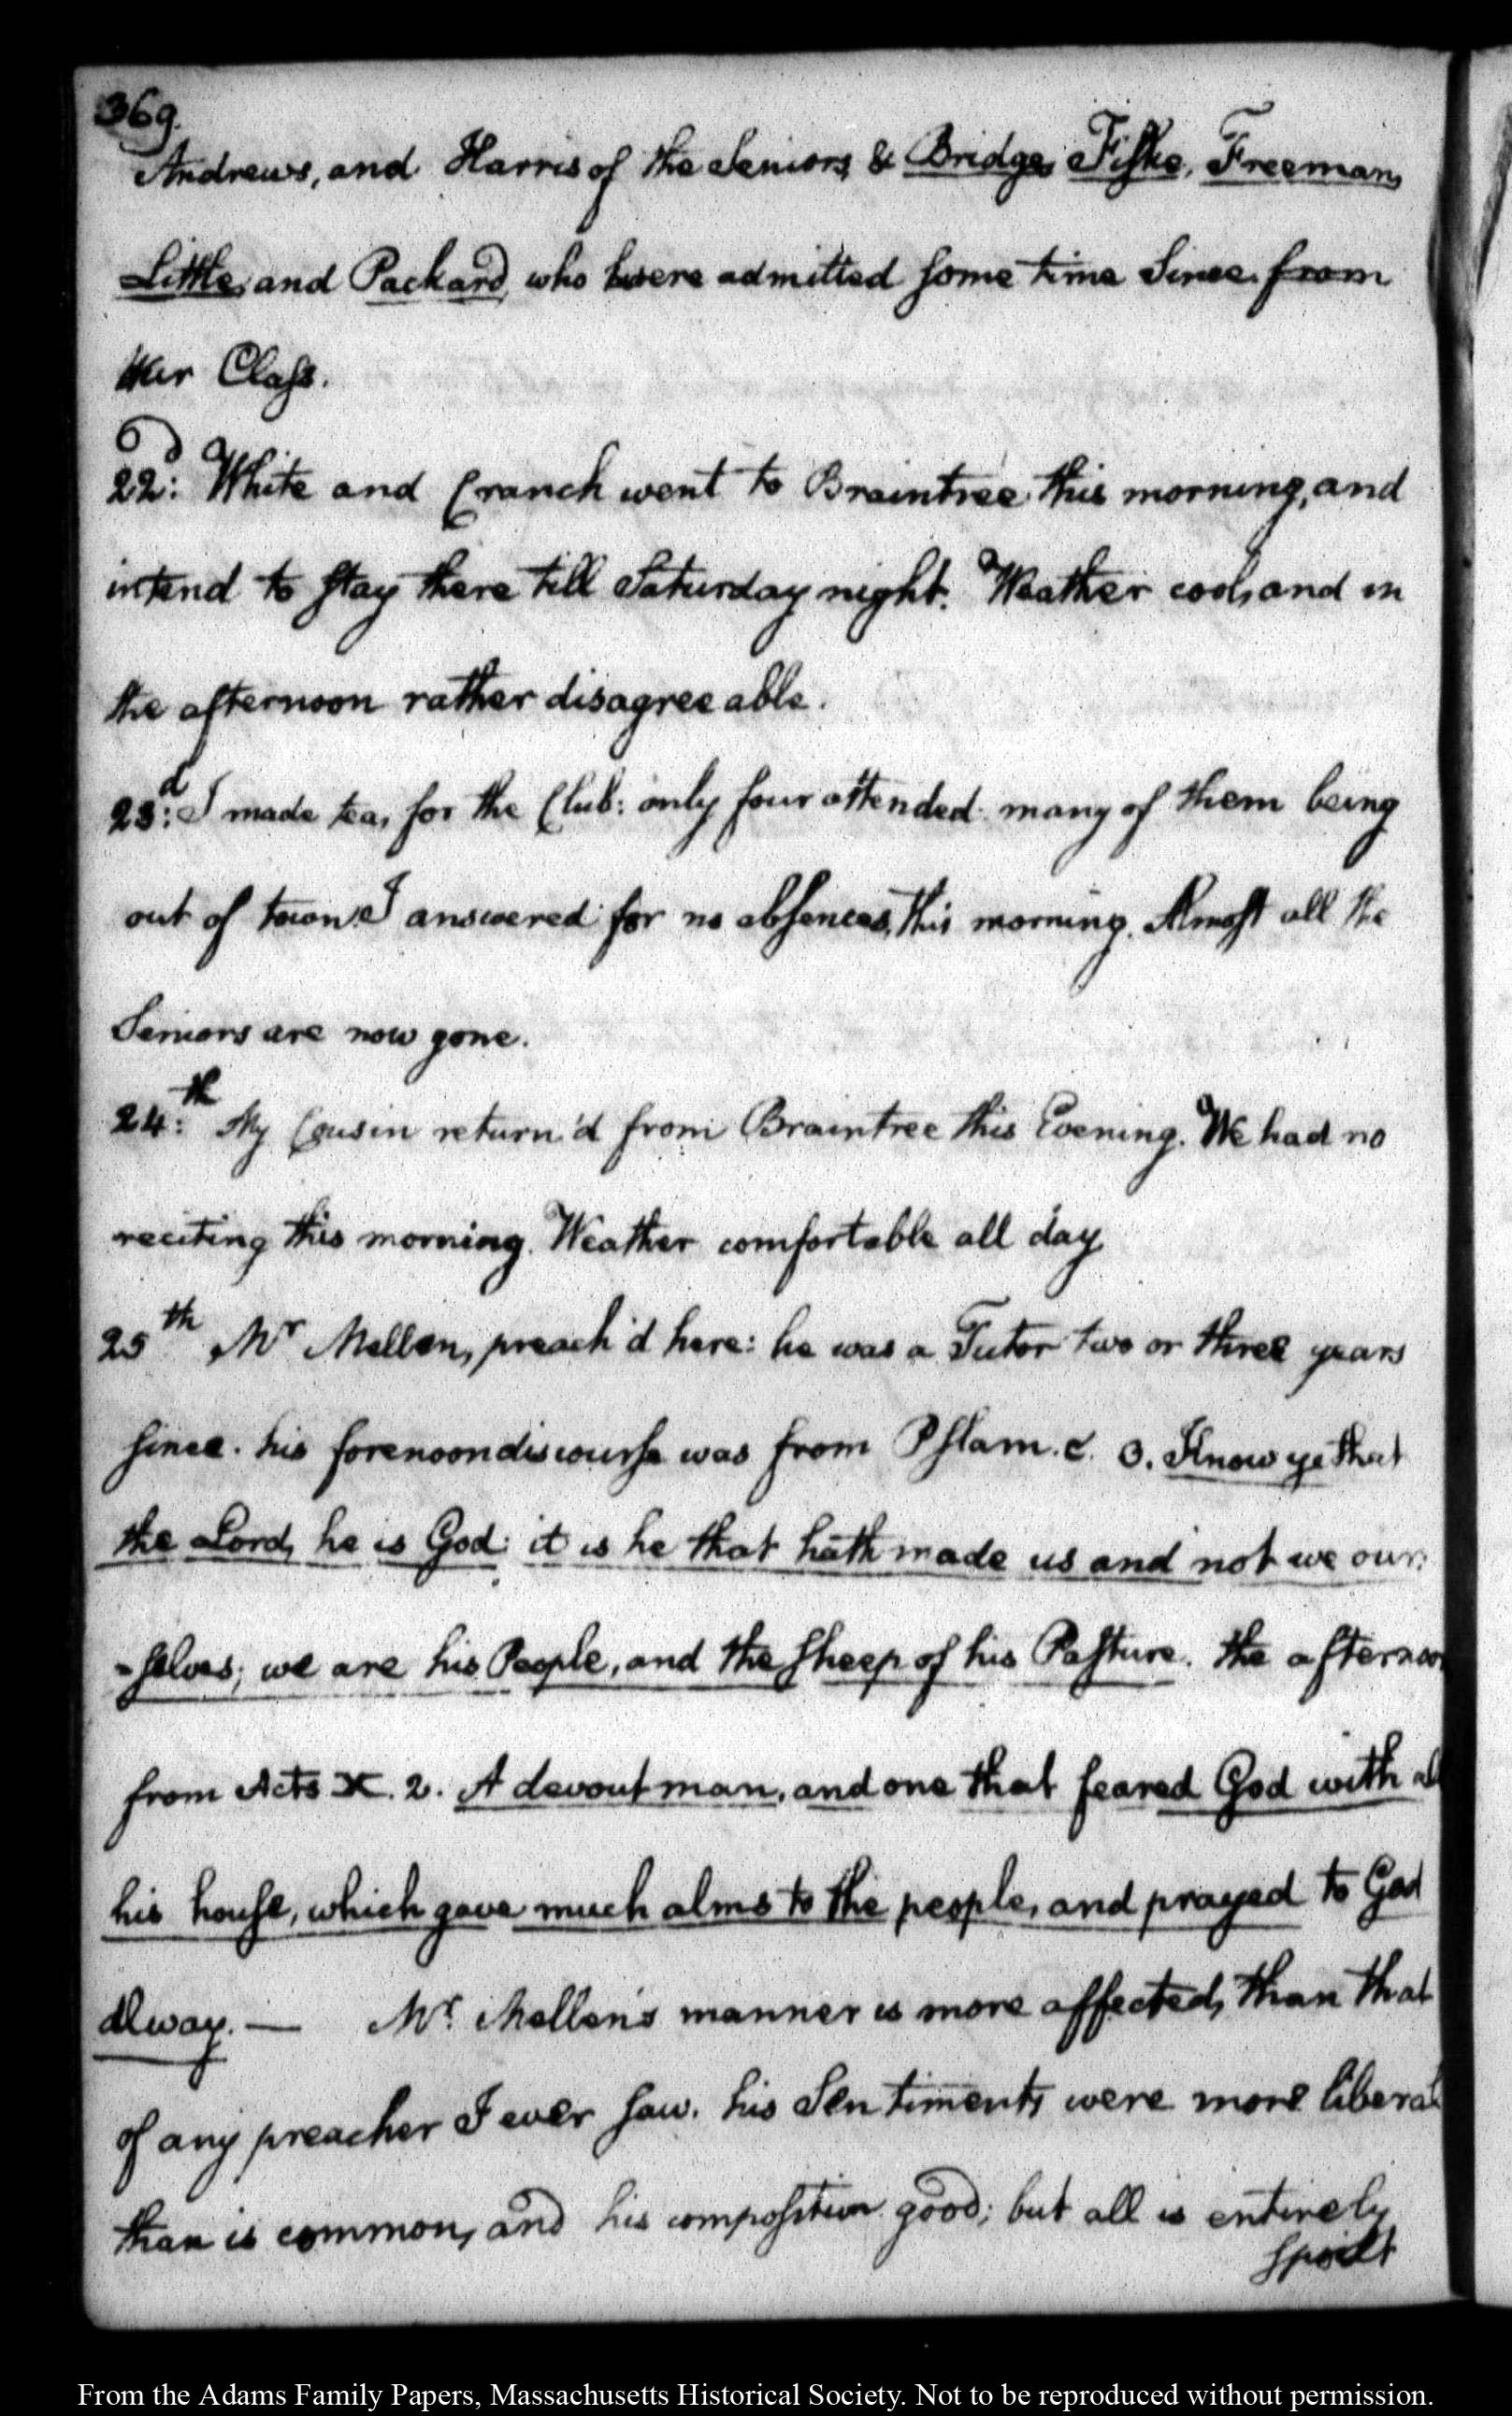 369.
Andrews, and Harris of the Seniors, & Bridge, Fiske, Freeman,
Little, and Packard, who were admitted some time since from
our Class.
22d: White and Cranch went to Braintree this morning, and
intend to stay there till Saturday night. Weather cool, and in
the afternoon rather disagreeable.
23d: I made tea, for the Club: only four attended many of them being
out of town. I answered for no absences, this morning. Almost all the
Seniors are now gone.
24th: My Cousin return'd from Braintree this Evening. We had no
reciting this morning. Weather comfortable all day.
25th Mr Mellen, preach'd here: he was a Tutor two or three years
since. his forenoon discourse was from Pslam. c. 3. Know ye that
the Lord, he is God: it is he that hath made us and not we our
-selves; we are his People, and the sheep of his Pasture. the afternoon
from Acts X. 2. A devout man, and one that feared God with all
his house, which gave much alms to the people, and prayed to God
alway. — Mr. Mellen's manner is more affected, than that
of any preacher I ever saw. his Sentiments were more liberal
than is common, and his composition good; but all is entirely
spoilt
From the Adams Family Papers, Massachusetts Historical Society. Not to be reproduced without permission.